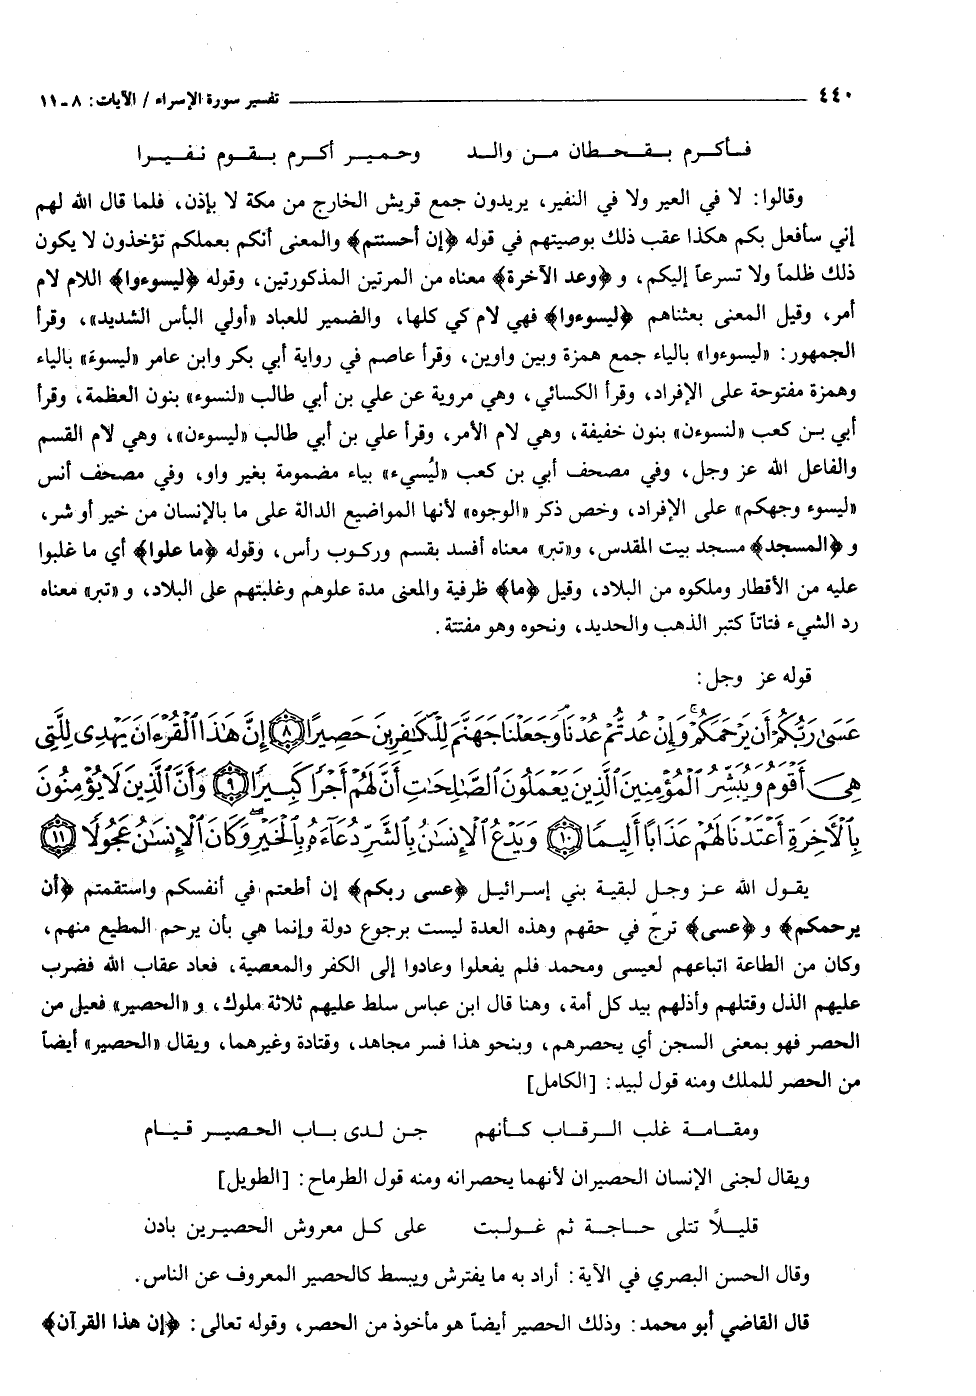 ٤٤٠ ــــــــــــــــــــــــــــــــ تفسير سورة الإسراء / الآيات: ٨ـ١١
فـأكـرم بـقـحـطان مـن والـد وحـميـر أكـرم بـقـوم نـفـيـرا
وقالوا: لا في العير ولا في النفير، يريدون جمع قريش الخارج من مكة لا بإذن، فلما قال الله لهم
إني سأفعل بكم هكذا عقب ذلك بوصيتهم في قوله ﴿إن أحسنتم﴾ والمعنى أنكم بعملكم تؤخذون لا يكون
ذلك ظلماً ولا تسرعاً إليكم، و ﴿وعد الآخرة﴾ معناه من المرتين المذكورتين، وقوله ﴿ليسوءوا﴾ اللام لام
أمر، وقيل المعنى بعثناهم ﴿ليسوءوا﴾ فهي لام كي كلها، والضمير للعباد «أولي البأس الشديد»، وقرأ
الجمهور: «ليسوءوا» بالياء جمع همزة وبين واوين، وقرأ عاصم في رواية أبي بكر وابن عامر «ليسوءَ» بالياء
وهمزة مفتوحة على الإفراد، وقرأ الكسائي، وهي مروية عن علي بن أبي طالب «لنسوء» بنون العظمة، وقرأ
أبي بـن كعب «لنسوءن» بنون خفيفة، وهي لام الأمر، وقرأ علي بن أبي طالب «ليسوءن»، وهي لام القسم
والفاعل الله عز وجل، وفي مصحف أبي بن كعب «ليُسيء» بياء مضمومة بغير واو، وفي مصحف أنس
«ليسوء وجهكم» على الإفراد، وخص ذكر «الوجوه» لأنها المواضيع الدالة على ما بالإنسان من خير أو شر،
و ﴿المسجد﴾ مسجد بيت المقدس، و«تبر» معناه أفسد بقسم وركوب رأس، وقوله ﴿ما علوا﴾ أي ما غلبوا
عليه من الأقطار وملكوه من البلاد، وقيل ﴿ما﴾ ظرفية والمعنى مدة علوهم وغلبتهم على البلاد، و «تبر» معناه
رد الشيء فتاتاً كتبر الذهب والحديد، ونحوه وهو مفتتة.
قوله عز وجل:
عَسَىٰ رَبُّكُمْ أَن يَرْحَمَكُمْ ۚ وَإِنْ عُدتُّمْ عُدْنَا ۘ وَجَعَلْنَا جَهَنَّمَ لِلْكَافِرِينَ حَصِيرًا ﴿٨﴾ إِنَّ هَٰذَا الْقُرْءَانَ يَهْدِي لِلَّتِي
هِيَ أَقْوَمُ وَيُبَشِّرُ الْمُؤْمِنِينَ الَّذِينَ يَعْمَلُونَ الصَّالِحَاتِ أَنَّ لَهُمْ أَجْرًا كَبِيرًا ﴿٩﴾ وَأَنَّ الَّذِينَ لَا يُؤْمِنُونَ
بِالْآخِرَةِ أَعْتَدْنَا لَهُمْ عَذَابًا أَلِيمًا ﴿١٠﴾ وَيَدْعُ الْإِنسَٰنُ بِالشَّرِّ دُعَاءَهُ بِالْخَيْرِ ۖ وَكَانَ الْإِنسَٰنُ عَجُولًا ﴿١١﴾
يقـول الله عـز وجـل لبقيـة بني إسـرائيـل ﴿عسى ربكم﴾ إن أطعتم في أنفسكم واستقمتم ﴿أن
يرحمكم﴾ و ﴿عسى﴾ ترجّ في حقهم وهذه العدة ليست برجوع دولة وإنما هي بأن يرحم المطيع منهم،
وكان من الطاعة اتباعهم لعيسى ومحمد فلم يفعلوا وعادوا إلى الكفر والمعصية، فعاد عقاب الله فضرب
عليهم الذل وقتلهم وأذلهم بيد كل أمة، وهنا قال ابن عباس سلط عليهم ثلاثة ملوك، و «الحصير» فعيل من
الحصر فهو بمعنى السجن أي يحصرهم، وبنحو هذا فسر مجاهد، وقتادة وغيرهما، ويقال «الحصير» أيضاً
من الحصر للملك ومنه قول لبيد: [الكامل]
ومقـامـة غلب الـرقـاب كـأنهم جـن لـدى بـاب الحـصيـر قيـام
ويقال لجنى الإنسان الحصيران لأنهما يحصرانه ومنه قول الطرماح: [الطويل]
قليـلًا تتلى حـاجـة ثم غـولبت على كـل معروش الحصيـرين بادن
وقال الحسن البصري في الآية: أراد به ما يفترش ويبسط كالحصير المعروف عن الناس.
قال القاضي أبو محمد: وذلك الحصير أيضاً هو مأخوذ من الحصر، وقوله تعالى: ﴿إن هذا القرآن﴾